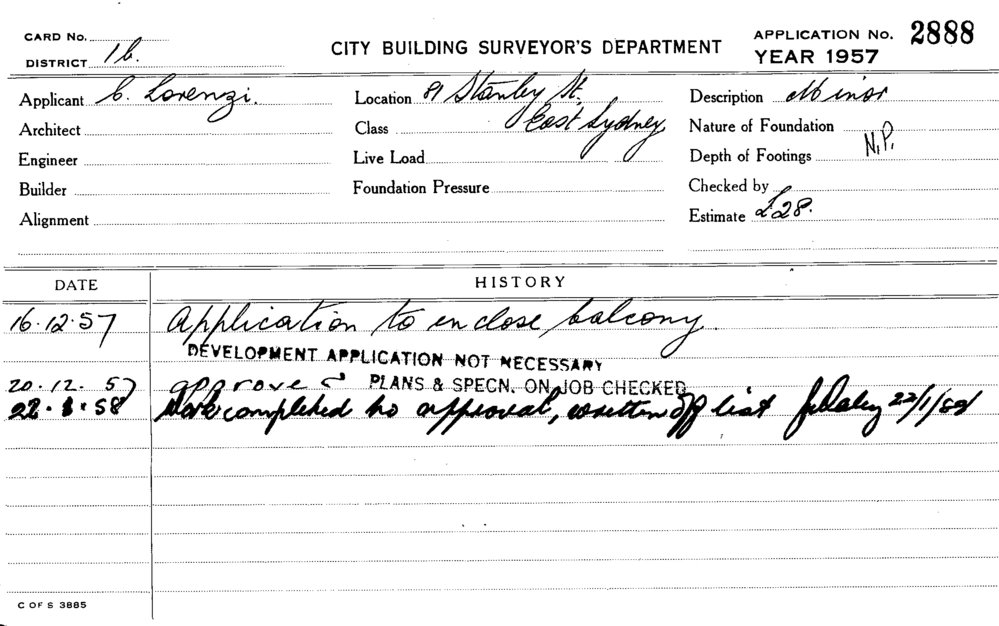 CARD No.
CITY BUILDING SURVEYOR'S DEPARTMENT
APPLICATION No. 2888
DISTRICT 1b.
YEAR 1957
Applicant C. Lorenzi.
Location 81 Stanley St.
Description Minor
Architect
Class East Sydney
Nature of Foundation
Engineer
Live Load
Depth of Footings N.P.
Builder
Foundation Pressure
Checked by
Alignment
Estimate £28.
DATE HISTORY
16.12.57 Application to enclose balcony.
DEVELOPMENT APPLICATION NOT NECESSARY
20.12.57 approved PLANS & SPECN. ON JOB CHECKED
22.1.58 Work completed to approval, written off list 22/1/58
C OF S 3885